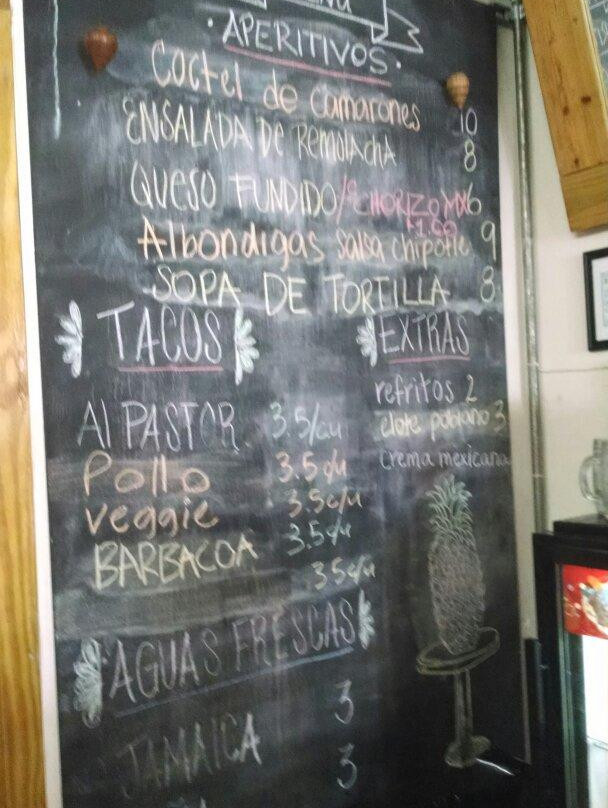 · APERITIVOS ·
Coctel de camarones 10
ENSALADA DE REMOLACHA 8
QUESO FUNDIDO/CHORIZO MX 6
+1.50
Albondigas salsa chipotle 9
SOPA DE TORTILLA 8
TACOS
Al PASTOR 3.5/c/u
Pollo 3.5c/u
veggie 3.5c/u
BARBACOA 3.5c/u
3.5c/u
EXTRAS
refritos 2
elote poblano 3
crema mexicana
AGUAS FRESCAS
3
JAMAICA 3